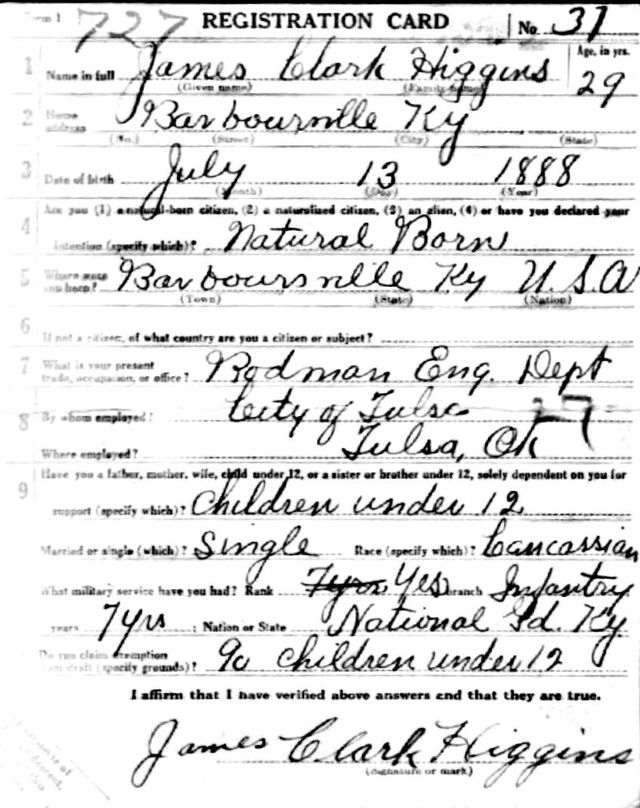 Form 1 727 REGISTRATION CARD No. 37
1 Name in full James Clark Higgins Age, in yrs. 29
(Given name) (Family name)
2 Home address Barbourville Ky
(No.) (Street) (City) (State)
3 Date of birth July 13 1888
(Month) (Day) (Year)
Are you (1) a natural-born citizen, (2) a naturalized citizen, (3) an alien, (4) or have you declared your
4 intention (specify which)? Natural Born
5 Where were you born? Barboursville Ky U.S.A
(Town) (State) (Nation)
6 If not a citizen, of what country are you a citizen or subject?
7 What is your present trade, occupation, or office? Rodman Eng. Dept
8 By whom employed? City of Tulsa
Where employed? Tulsa, Ok
9 Have you a father, mother, wife, child under 12, or a sister or brother under 12, solely dependent on you for
support (specify which)? Children under 12
Married or single (which)? Single Race (specify which)? Caucassian
What military service have you had? Rank 7yrs Yes branch Infantry
years 7yrs ; Nation or State National Gd. Ky
Do you claim exemption from draft (specify grounds)? children under 12
I affirm that I have verified above answers and that they are true.
James Clark Higgins
(Signature or mark)